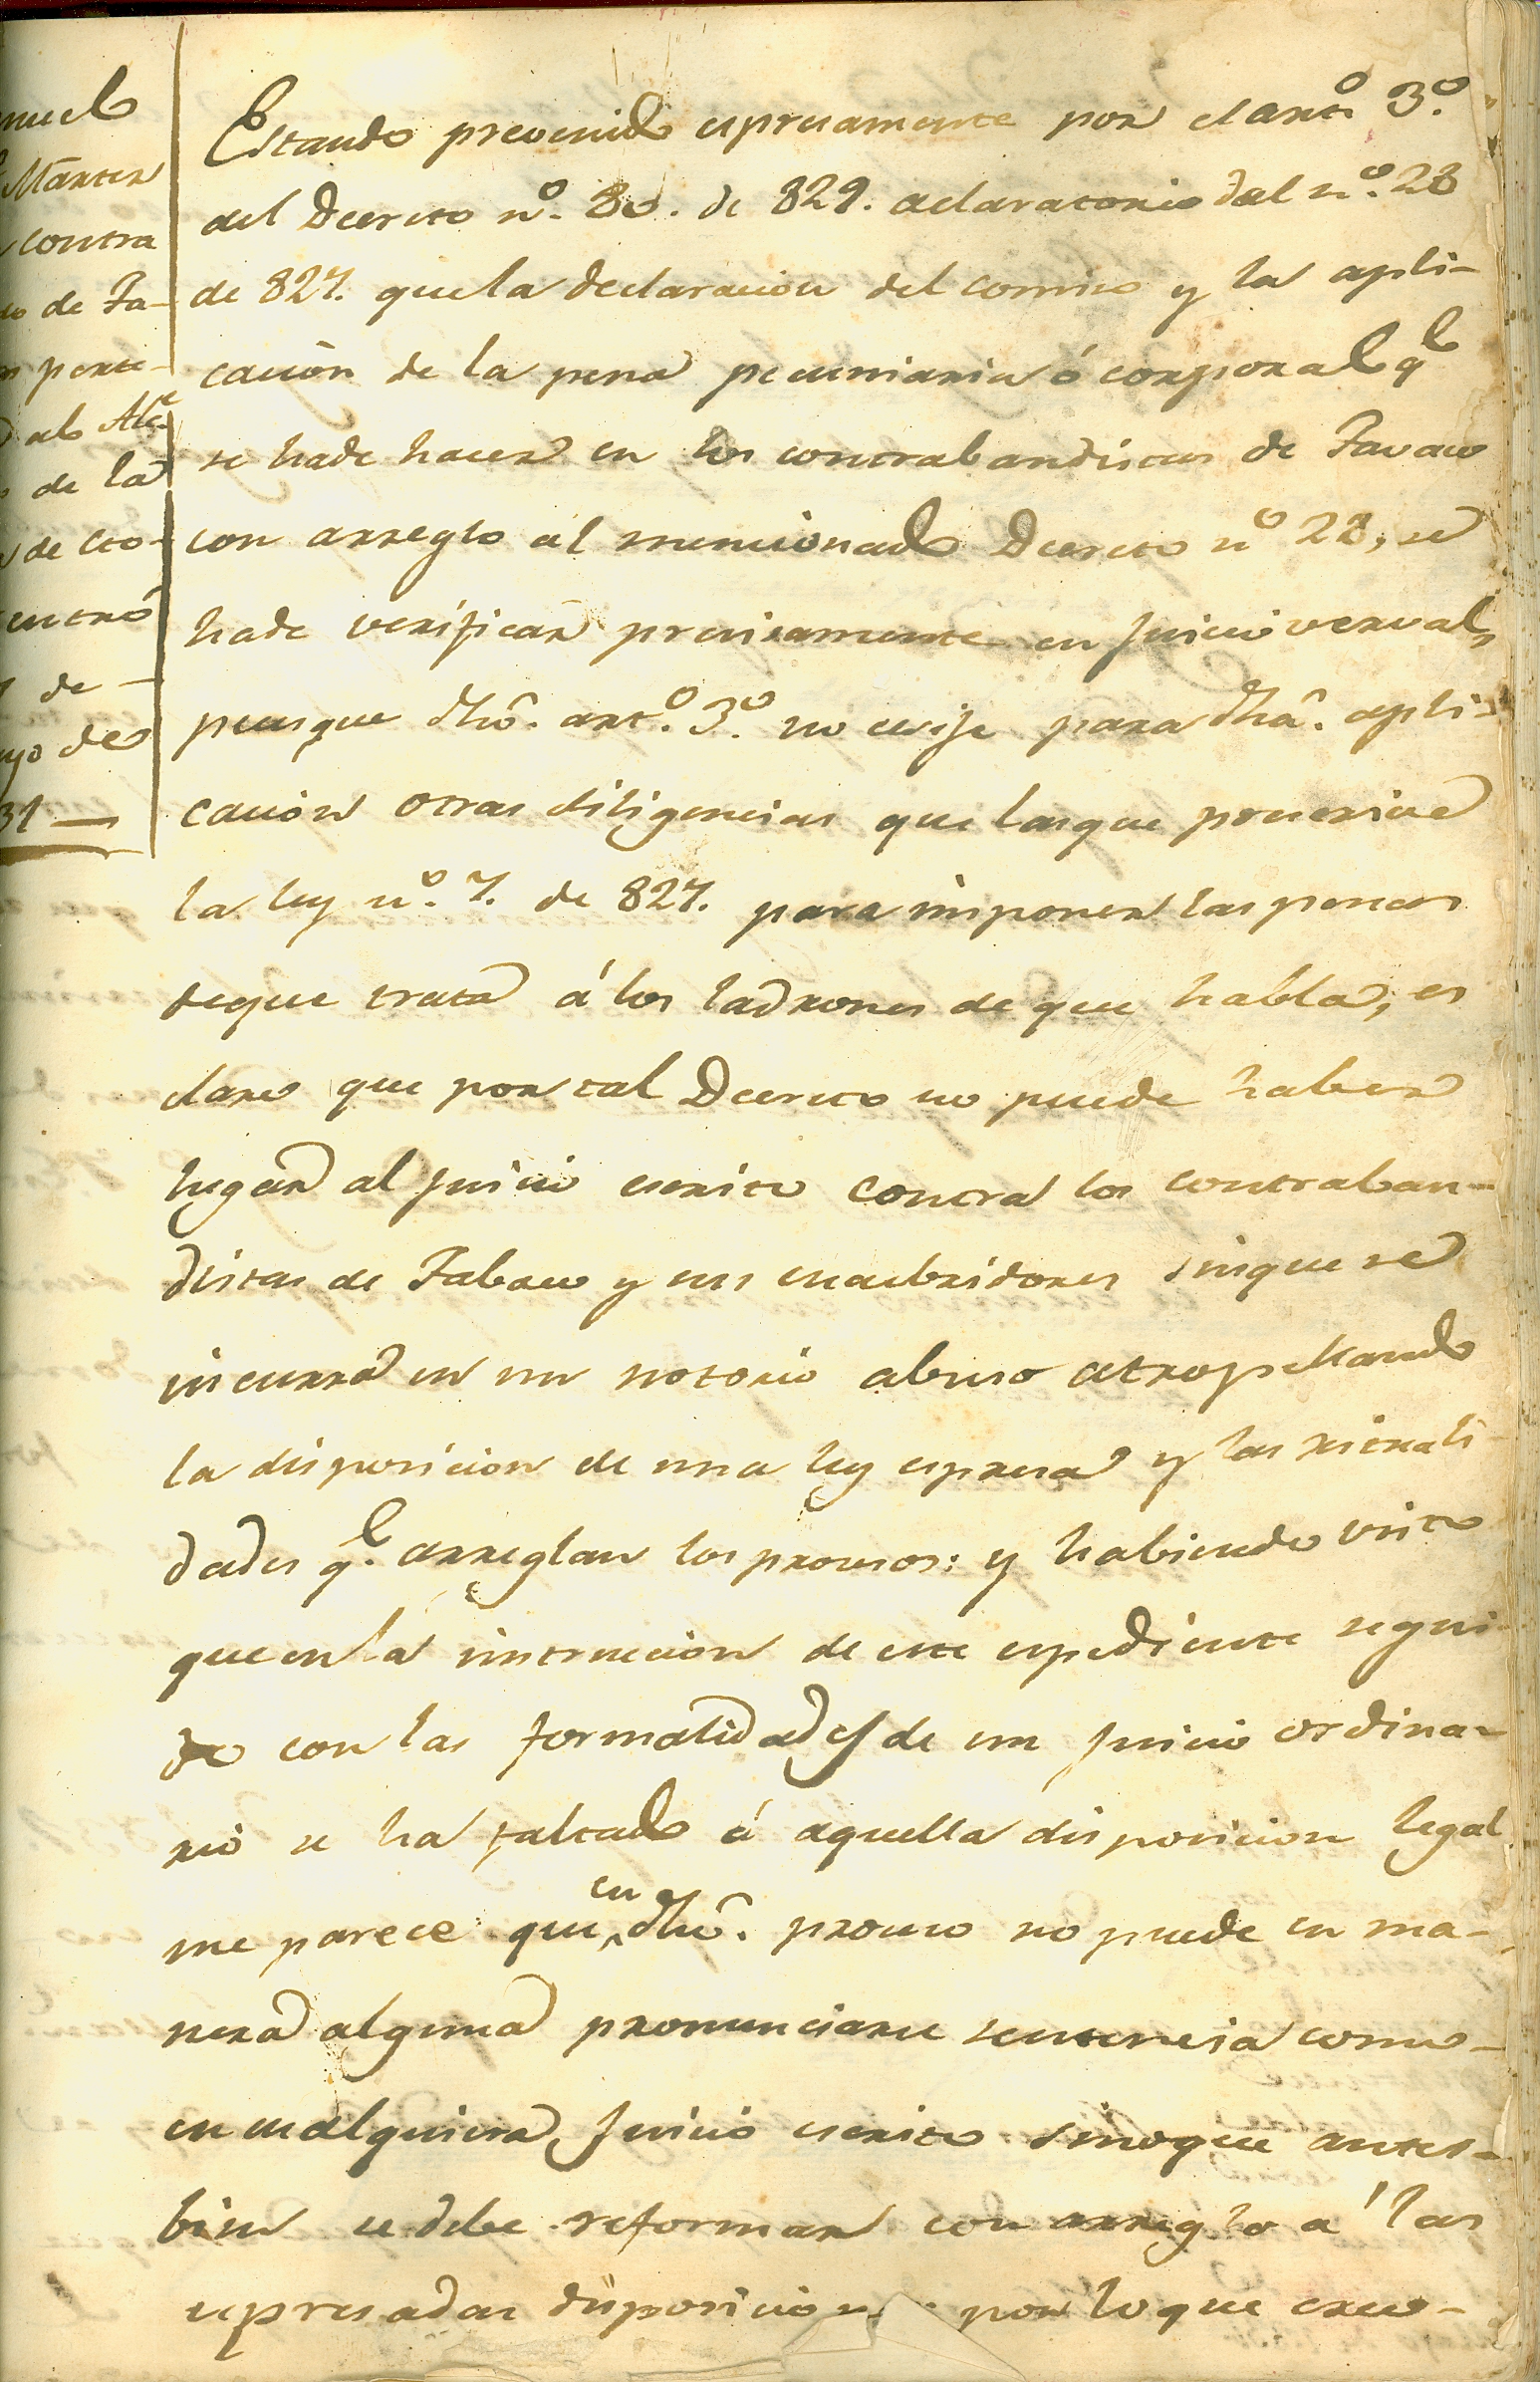 nuel
Marten
contra
do de Ta-
n perte-
al Alce
de la
de Cto-
entró
de —
yo de
31 —
Estando prevenido espresamente por el arto. 3º.
del Decreto nº. 80. de 829. aclaratorio del nº. 28
de 827. que la declaracion del comiso y la apli-
cación de la pena pecuniaria ó corporal qe
se hade hacer en los contrabandistas de Tavaco
con arreglo al mencionado Decreto nº 28, se
hade verificar precisamente en Juicio verval,
pues que dhô. artº. 3º. no exije para dhâ. apli-
cación otras diligencias que las que prescrive
la ley nº. 7. de 827. para imponer las penas
de que trata á los ladrones de que habla, es
claro que por tal Decreto no puede haber
lugar al Juicio escrito contra los contraban-
distas de Tabaco y sus encubridores sin que se
incurra en un notorio abuso atropellando
la disposicion de una ley espresa y las rituali-
dades qe. arreglan los procesos: y habiendo visto
que en la instruccion de este espediente segui-
do con las formalidades de un Juicio ordina-
rio se ha faltado á aquella disposicion legal
me parece que en dhô. proceso no puede en ma-
nera alguna pronunciarse sentencia como-
en cualquiera Juicio escrito sinoque antes-
bien se debe reformar con arreglo á las
espresadas disposiciones por lo que creo-